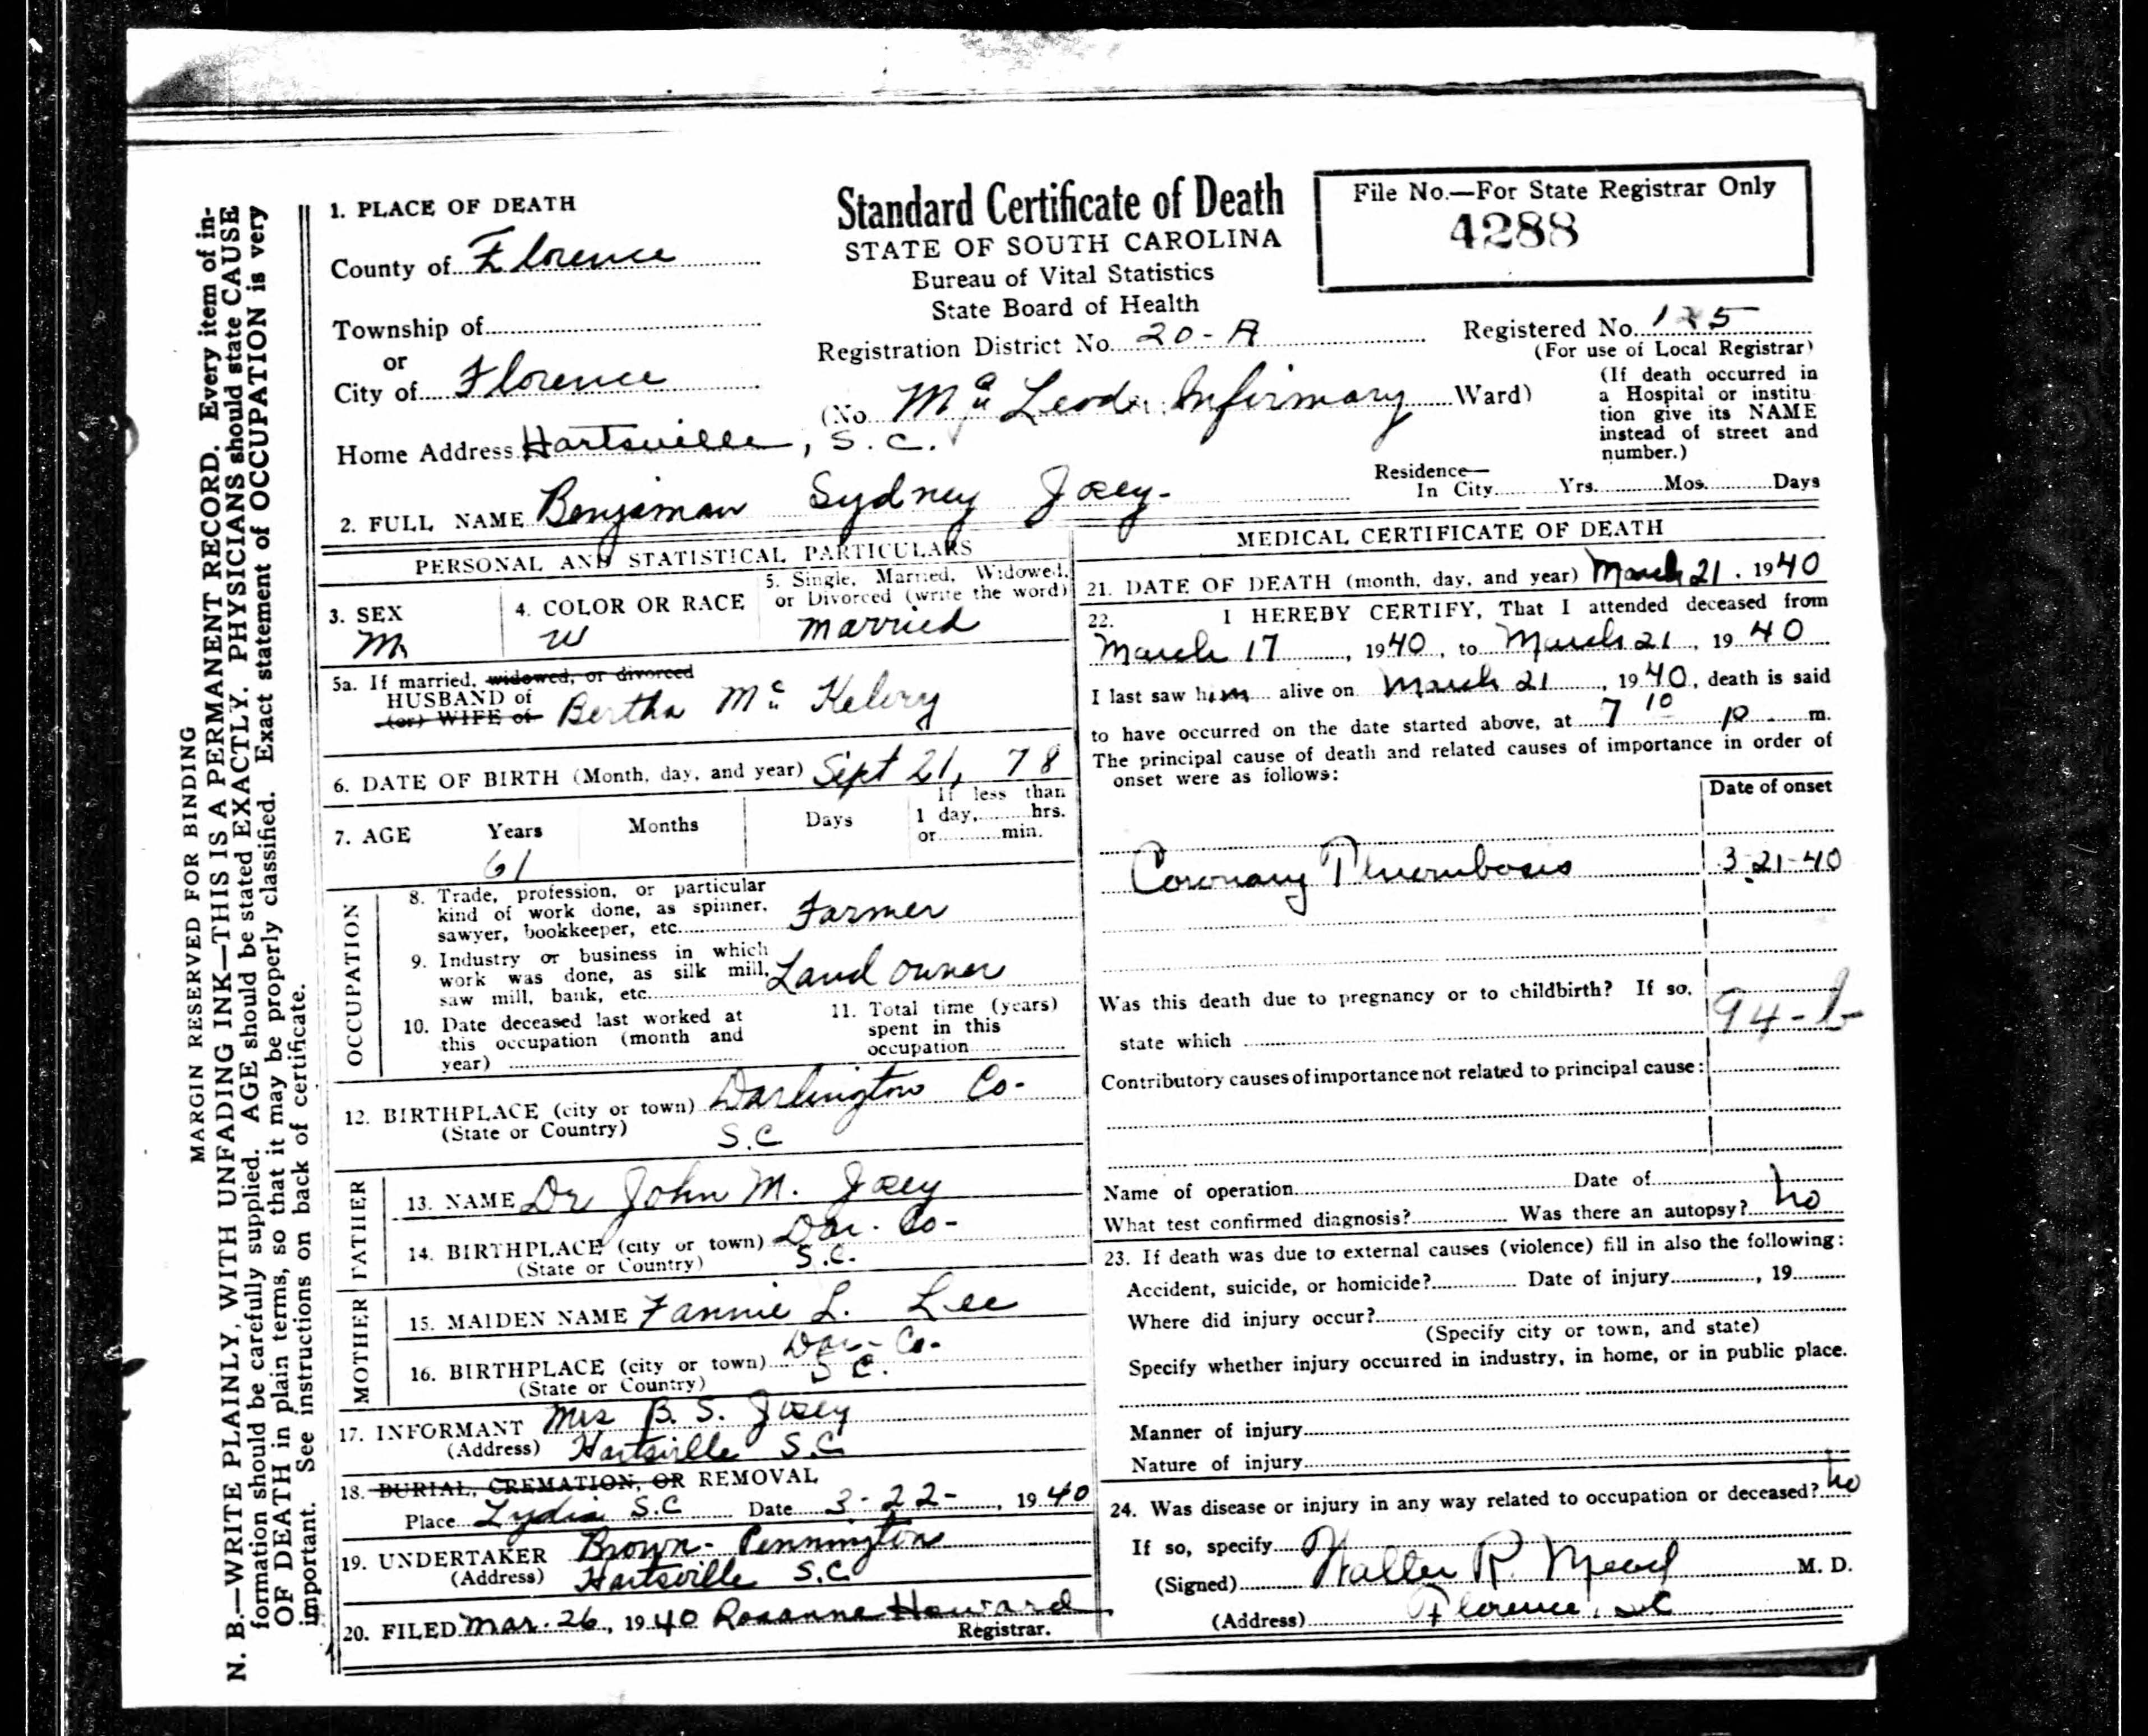 MARGIN RESERVED FOR BINDING
N. B.—WRITE PLAINLY, WITH UNFADING INK—THIS IS A PERMANENT RECORD. Every item of in-
formation should be carefully supplied. AGE should be stated EXACTLY. PHYSICIANS should state CAUSE
OF DEATH in plain terms, so that it may be properly classified. Exact statement of OCCUPATION is very
important. See instructions on back of certificate.
1. PLACE OF DEATH
County of Florence
Township of
or
City of Florence
Home Address Hartsville, S.C.
Standard Certificate of Death
STATE OF SOUTH CAROLINA
Bureau of Vital Statistics
State Board of Health
Registration District No. 20-A
(No. Mc Leod Infirmary Ward)
File No.—For State Registrar Only
4288
Registered No. 125
(For use of Local Registrar)
(If death occurred in
a Hospital or institu
tion give its NAME
instead of street and
number.)
2. FULL NAME Benjaman Sydney Josey
Residence—
In City Yrs. Mos. Days
PERSONAL AND STATISTICAL PARTICULARS
3. SEX
M
4. COLOR OR RACE
W
5. Single, Married, Widowed,
or Divorced (write the word)
Married
5a. If married, widowed, or divorced
HUSBAND of
(or) WIFE of Bertha Mc Kelvy
6. DATE OF BIRTH (Month, day, and year) Sept 21, 78
7. AGE Years Months Days If less than
1 day, hrs.
or min.
61
OCCUPATION
8. Trade, profession, or particular
kind of work done, as spinner,
sawyer, bookkeeper, etc. Farmer
9. Industry or business in which
work was done, as silk mill,
saw mill, bank, etc. Land owner
10. Date deceased last worked at
this occupation (month and
year)
11. Total time (years)
spent in this
occupation
12. BIRTHPLACE (city or town) Darlington Co-
(State or Country) S.C
FATHER
13. NAME Dr John M. Josey
14. BIRTHPLACE (city or town) Dar. Co-
(State or Country) S.C.
MOTHER
15. MAIDEN NAME Fannie L. Lee
16. BIRTHPLACE (city or town) Dar- Co-
(State or Country) S C.
17. INFORMANT Mrs B. S. Josey
(Address) Hartsville S.C
18. BURIAL, CREMATION, OR REMOVAL
Place Lydia S.C Date 3-22-, 1940
19. UNDERTAKER Brown-Pennington
(Address) Hartsville S.C
20. FILED Mar. 26, 1940 Roxanne Howard
Registrar.
MEDICAL CERTIFICATE OF DEATH
21. DATE OF DEATH (month, day, and year) March 21, 1940
22. I HEREBY CERTIFY, That I attended deceased from
March 17, 1940, to March 21, 1940
I last saw him alive on March 21, 1940, death is said
to have occurred on the date started above, at 7 10 p m.
The principal cause of death and related causes of importance in order of
onset were as follows:
Date of onset
Coronary Thrombosis 3-21-40
Was this death due to pregnancy or to childbirth? If so,
state which
94-b
Contributory causes of importance not related to principal cause:
Name of operation Date of
What test confirmed diagnosis? Was there an autopsy? no
23. If death was due to external causes (violence) fill in also the following:
Accident, suicide, or homicide? Date of injury, 19
Where did injury occur?
(Specify city or town, and state)
Specify whether injury occurred in industry, in home, or in public place.
Manner of injury
Nature of injury
24. Was disease or injury in any way related to occupation or deceased? no
If so, specify
(Signed) Walter R. Mead M. D.
(Address) Florence, SC